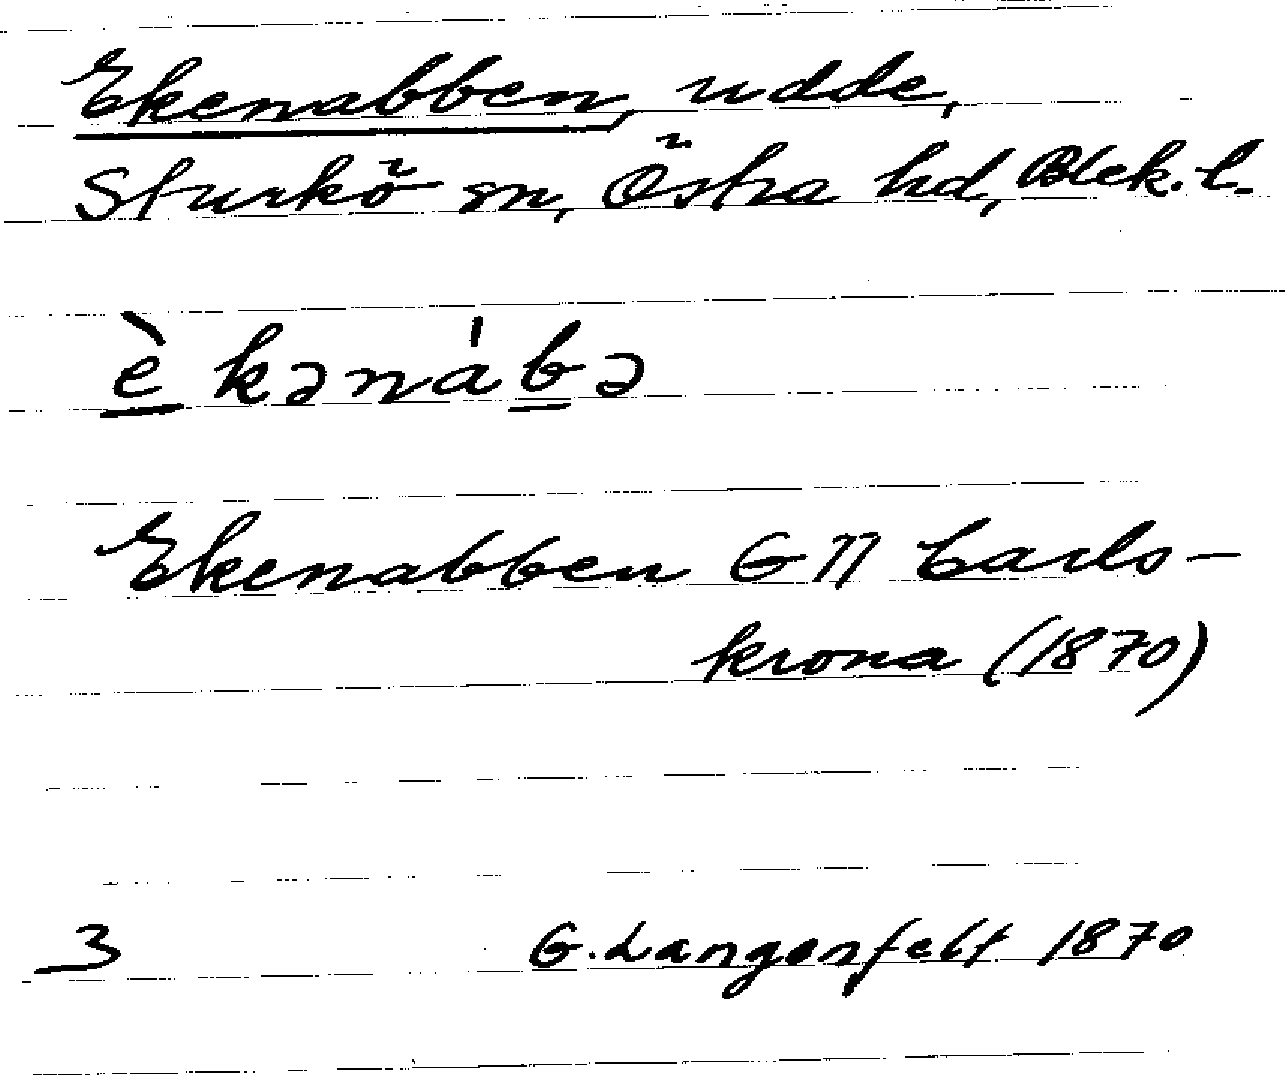 Ekenabben, udde,
Sturkö sn, Östra hd, Blek. l.
è kənábə
Ekenabben G η Carls-
krona (1870)
3 G. Langenfelt 1870